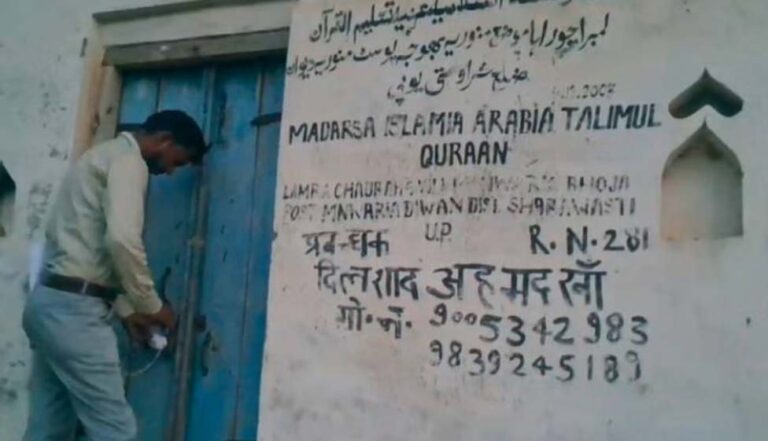 اسلامیہ عربیہ تعلیم القرآن
چوراہا موضع منوریہ بھوجہ پوسٹ منوریہ دیوان
ضلع شراوستی یوپی
MADARSA ISLAMIA ARABIA TALIMUL
QURAAN
LAMRA CHAURAHA VILL BHOJA
POST MNWARIA DIWAN DIST. SHARAWASTI
प्रबन्धक U.P. R.N.281
दिलशाद अहमद खाँ
मो॰ नं॰ 9005342983
9839245189